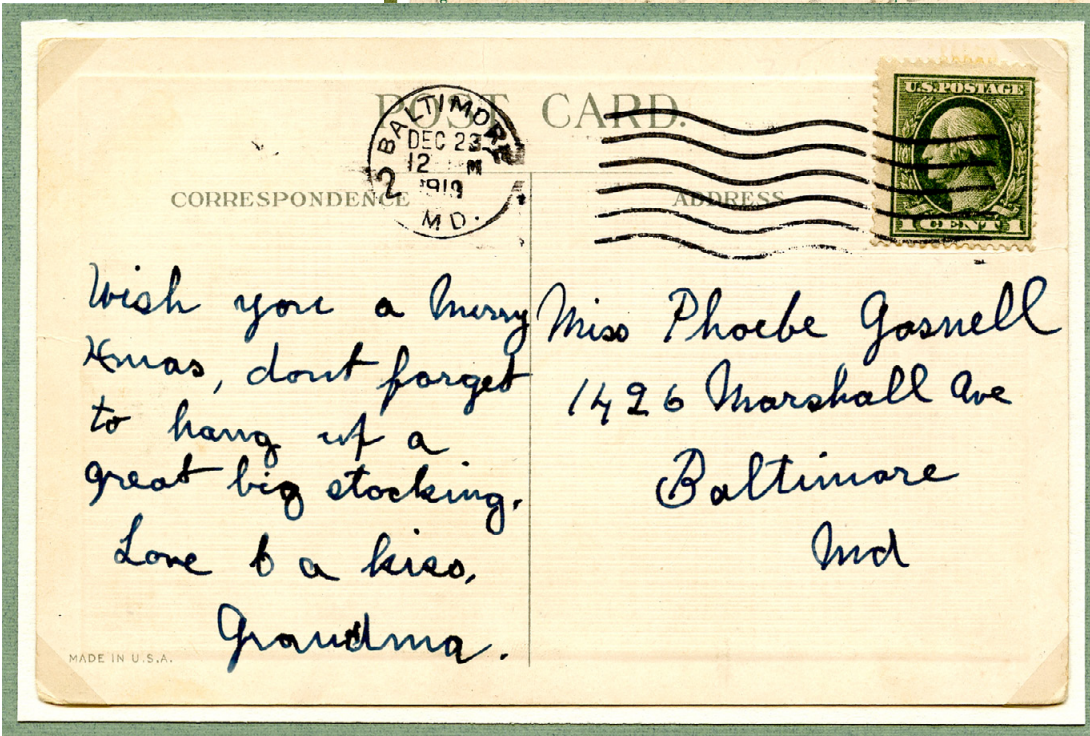 POST CARD.
BALTIMORE
DEC 23
12 M
1919
2
MD.
U.S. POSTAGE
1 CENT 1
CORRESPONDENCE
ADDRESS
Wish you a Merry
Xmas, dont forget
to hang up a
great big stocking.
Love & a kiss,
Grandma.
Miss Phoebe Gosnell
1426 Marshall Ave
Baltimore
Md
MADE IN U.S.A.